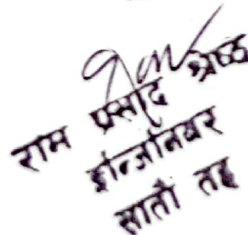 राम प्रसाद श्रेष्ठ
इन्जिनियर
सातौ तह